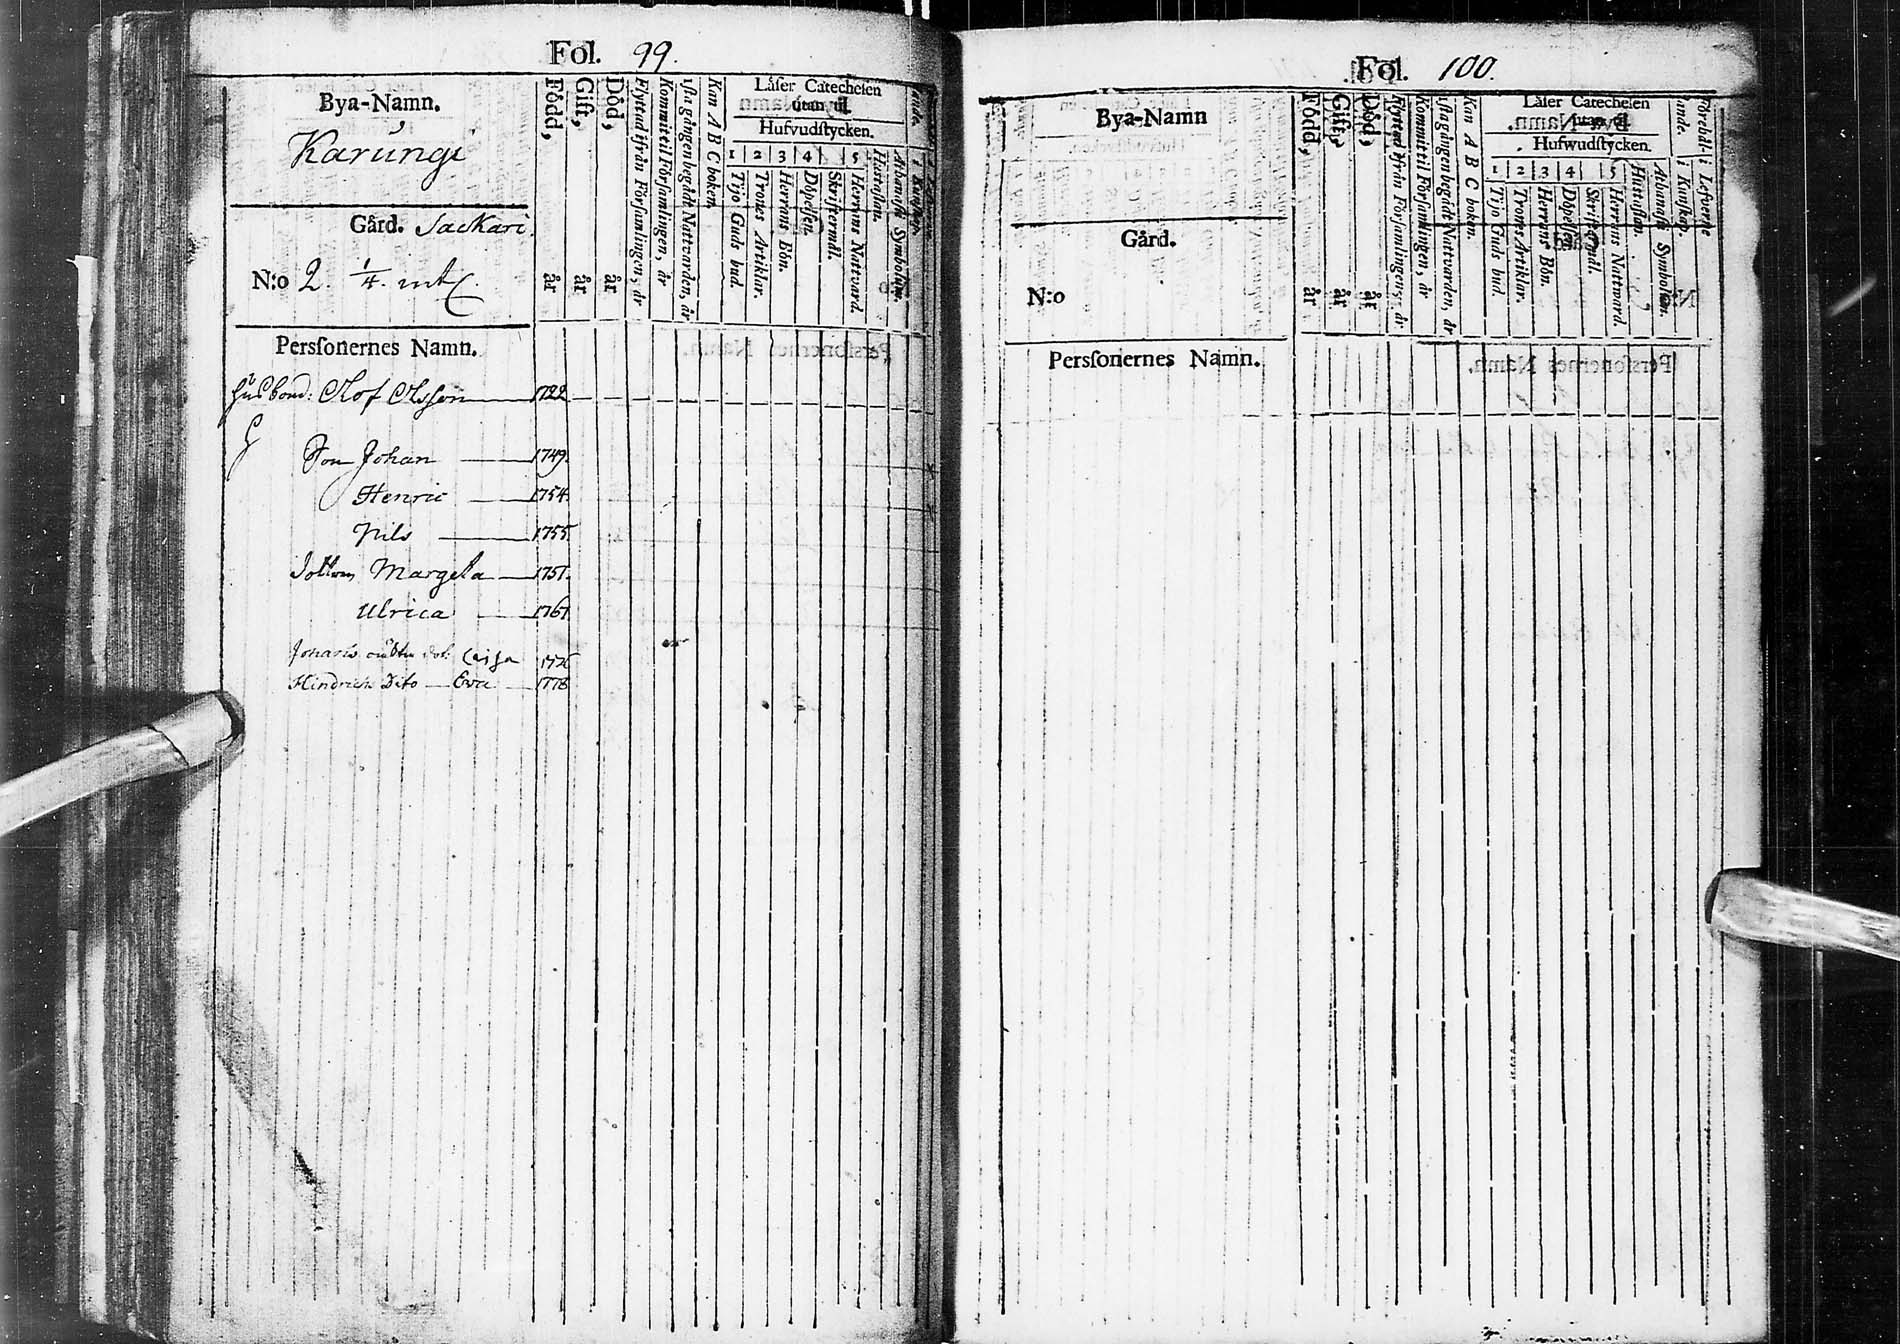 Fol. 99.
Bya-Namn.
Karungi
Gård. Sackari.
N:o 2. 1/4. mtl.
Född, år
Gift, år
Död, år
Flyttad ifrån Församlingen, år
Kommit til Församlingen, år
1sta gången begådt Nattvarden, år
Kan A B C boken.
Låser Catechesen utan til.
Hufvudstycken.
1 2 3 4 5
Tijo Guds bud.
Trones Artiklar.
Herrans Bön.
Döpelsen.
Skriftermål.
Herrans Nattvard.
Hustaflan.
Athanasii Symbolum.
Perssonernes Namn.
Husbond: Olof Olsson 1722
Son Johan 1749.
Henric 1754.
Nils 1755.
Margeta 1751.
Ulrica 1761
Johans Caisa
Hindrich Dito Eva 1778
Fol. 100.
Bya-Namn
Gård.
N:o
Född, år
Gift, år
Död, år
Flyttad ifrån Församlingen, år
Kommit til Församlingen, år
1sta gången begådt Nattvarden, år
Kan A B C boken.
Låser Catechesen utan til.
Hufwudstycken.
1 2 3 4 5
Tijo Guds bud.
Trones Artiklar.
Herrans Bön.
Döpelsen.
Skriftermål.
Herrans Nattvard.
Hustaflan.
Athanasii Symbolum.
Förehållande. i Kunskap.
i Lefverne
Perssonernes Namn.